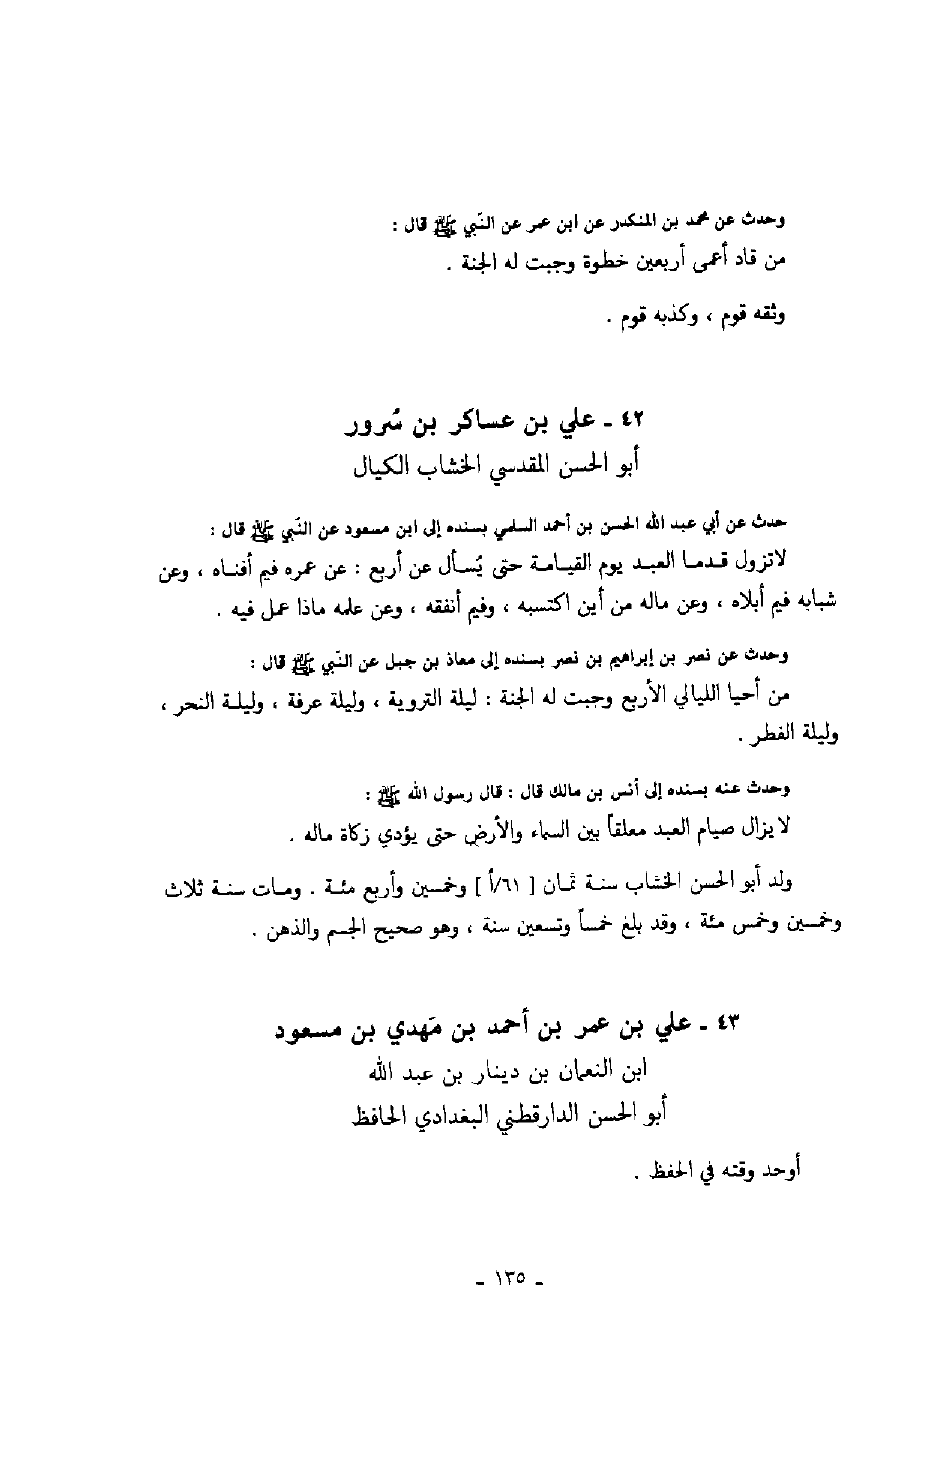 وحدث عن محمد بن المنكدر عن ابن عمر عن النّبي ﷺ قال :
من قاد أعمى أربعين خطوة وجبت له الجنة .
وثقه قوم ، وكذبه قوم .
٤٢ ـ علي بن عساكر بن سُرور
أبو الحسن المقدسي الخشاب الكيال
حدث عن أبي عبد الله الحسن بن أحمد السلمي بسنده إلى ابن مسعود عن النّبي ﷺ قال :
لاتزول قدما العبد يوم القيامة حتى يُسأل عن أربع : عن عمره فيم أفناه ، وعن
شبابه فيم أبلاه ، وعن ماله من أين اكتسبه ، وفيم أنفقه ، وعن علمه ماذا عمل فيه .
وحدث عن نصر بن إبراهيم بن نصر بسنده إلى معاذ بن جبل عن النّبي ﷺ قال :
من أحيا الليالي الأربع وجبت له الجنة : ليلة التروية ، وليلة عرفة ، وليلة النحر ،
وليلة الفطر .
وحدث عنه بسنده إلى أنس بن مالك قال : قال رسول الله ﷺ :
لا يزال صيام العبد معلقاً بين السماء والأرض حتى يؤدي زكاة ماله .
ولد أبو الحسن الخشاب سنة ثمان [ ٦١/أ ] وخمسين وأربع مئة . ومات سنة ثلاث
وخمسين وخمس مئة ، وقد بلغ خمساً وتسعين سنة ، وهو صحيح الجسم والذهن .
٤٣ ـ علي بن عمر بن أحمد بن مَهدي بن مسعود
ابن النعمان بن دينار بن عبد الله
أبو الحسن الدارقطني البغدادي الحافظ
أوحد وقته في الحفظ .
ـ ١٣٥ ـ